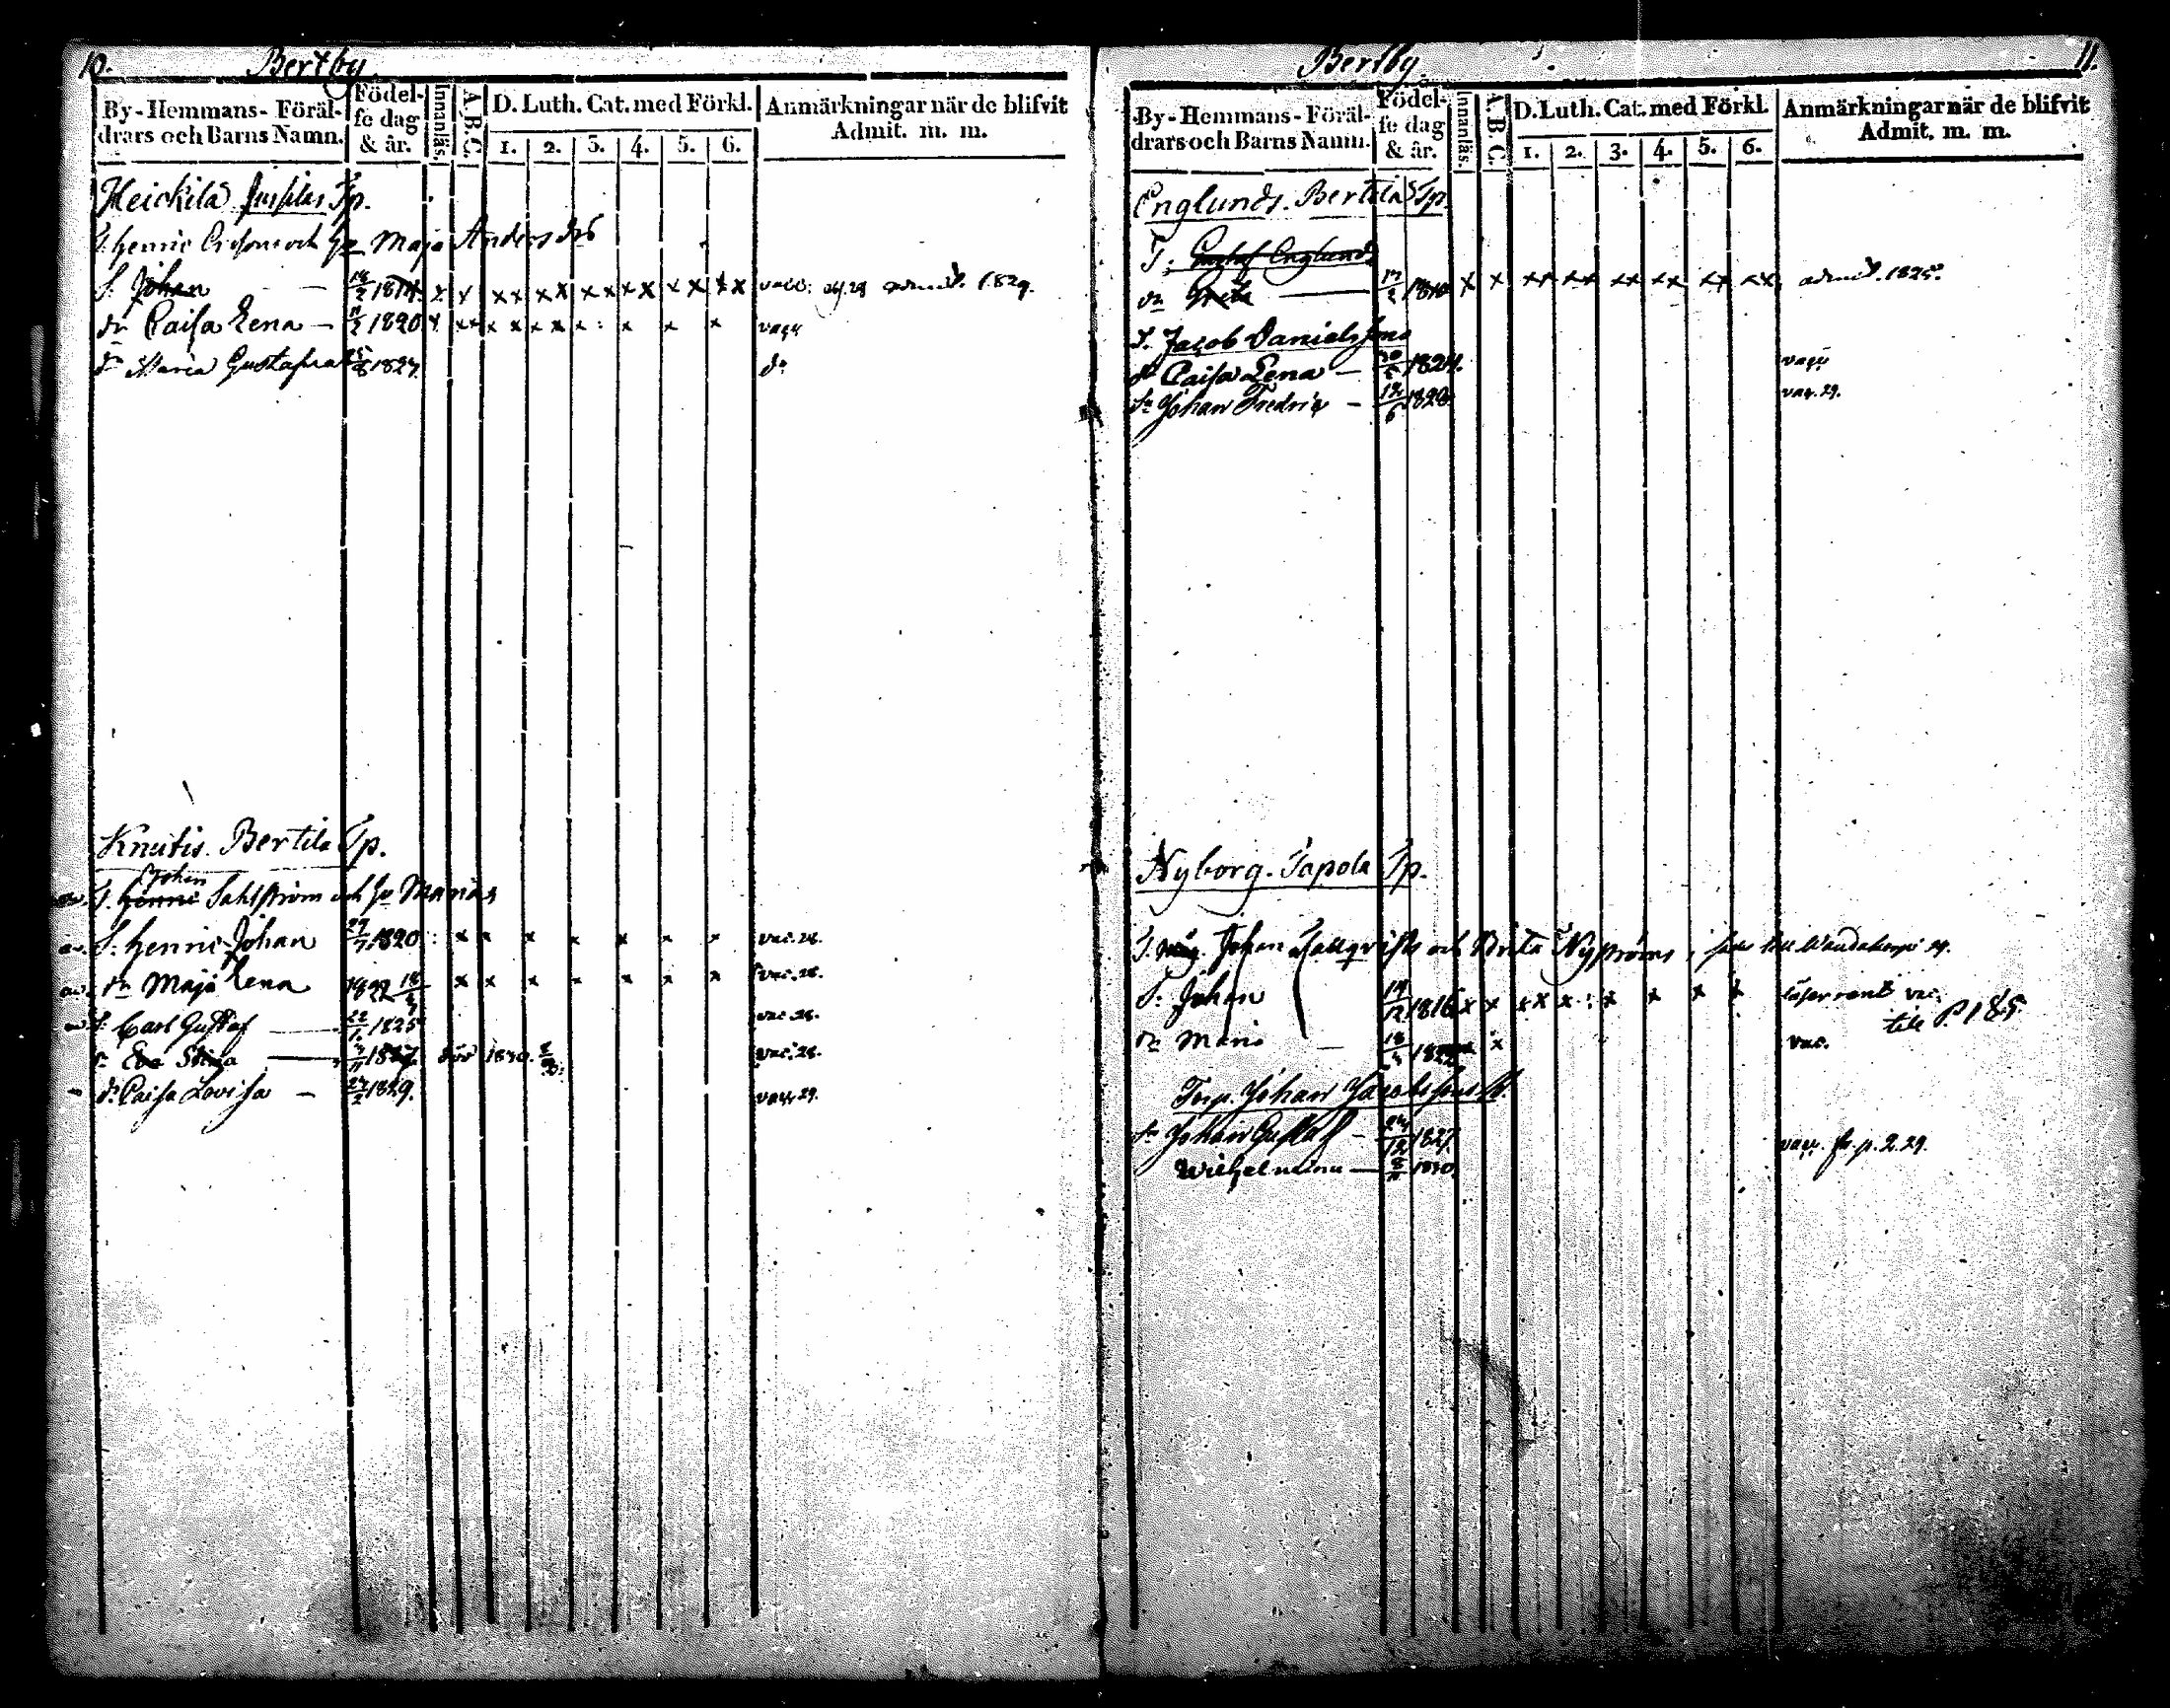 10. Bertby
By-Hemmans-Föräl-
drars och Barns Namn.
Födel-
se dag
& år.
Innanläs.
A.B.C.
D. Luth. Cat. med Förkl.
1. 2. 3. 4. 5. 6.
Anmärkningar när de blifvit
Admit. m. m.
Heickilä Tp.
T. Henric och Hu Maja Anders dr
S. Johan — 1814 x x xx xx xx xx xx xx admit. 1829.
dr Caisa Lena — 11/2 1820 x xx x x x x x : x x x vacc
dr Maria Gustafva 1827 do
Knutis. Bertila Tp.
Johan
T. Henric Sahlström och Hu Marias
S. Henric Johan 27/7 1820 : x x x x x x x vac. 28.
dr Maja Lena 1822 18/4 x x x x x x x vac. 28.
S. Carl Gustaf — 22/1 1825 vac. 28.
dr Eva Stina — 1827 död 1830. vac. 28.
dr Caisa Lovisa — 24/2 1829. vacc 29.
Bertby 11.
By-Hemmans-Föräl-
drars och Barns Namn.
Födel-
se dag
& år.
Innanläs.
A.B.C.
D. Luth. Cat. med Förkl.
1. 2. 3. 4. 5. 6.
Anmärkningar när de blifvit
Admit. m. m.
Englunds. Bertila Tp.
T. Gustaf Englund
dr Greta — 17/2 1810 x x xx xx xx xx xx xx admit. 1825.
T. Jacob Danielssons
dr Caisa Lena — 1824. vacc
Sn Johan Fredric — 12/6 1828 vac. 29.
Nyborg. Tapola Tp.
T. Johan Hallqvists och Brita Nyströms,
S. Johan 14/12 1816 x x xx x : x x x x läser rent vac.
till P. 185
dr Maria — 18/4 1822 x vac.
Torp. Johan Jacobssons
Sn Johan Gustaf — 24/12 1827. vacc. fr. p. 2. 29.
Wilhelmina — 1830